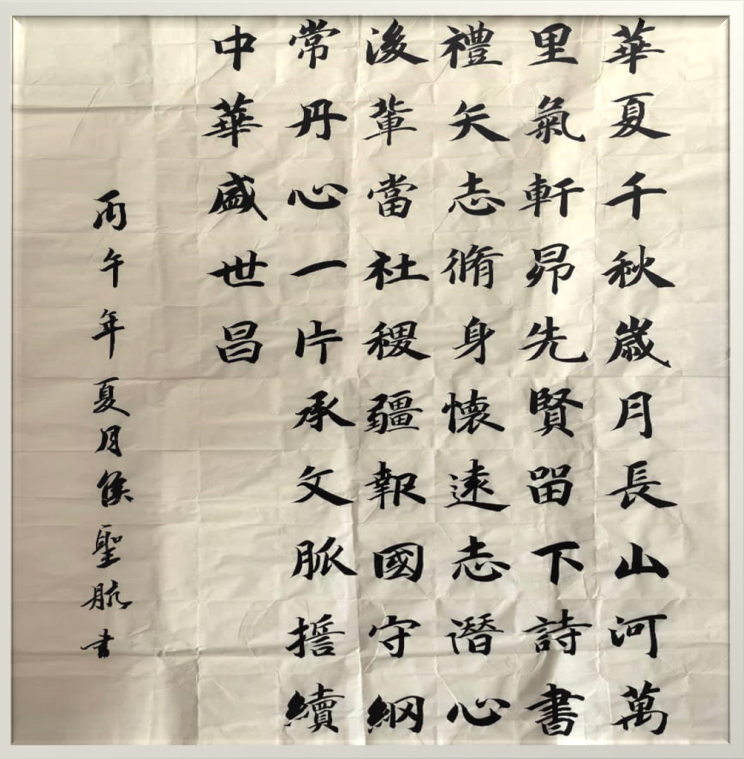 華夏千秋歲月長山河萬
里氣軒昂先賢留下詩書
禮矢志脩身懷遠志潛心
後輩當社稷疆報國守綱
常丹心一片承文脈誓續
中華盛世昌
丙午年夏月侯聖航書